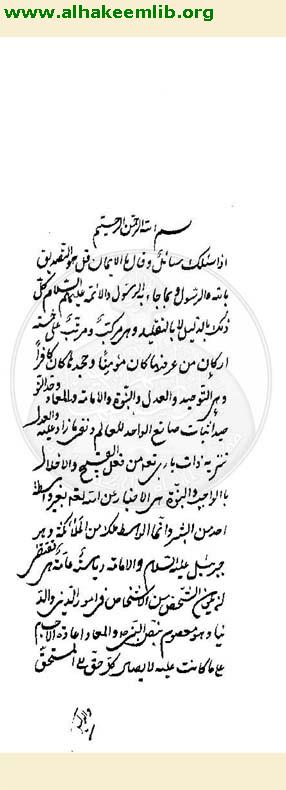 www.alhakeemlib.org
بسم الله الرحمن الرحيم
اذا سئلك سائل وقال ما الايمان فقل هو التصديق
بالله و الرسول و بما جاء به الرسول والائمة عليهم السلام كل
ذلك بالدليل لا بالتقليد وهو مركب و مرتب على خمسة
اركان من عرفها كان مؤمنا و من جحدها كان كافرا
وهى التوحيد والعدل والنبوة والامامة والمعاد
اثبات صانع الواحد للعالم و نفى ما زاد عليه والعدل
تنزيه ذات بارى تعه من فعل القبيح والاخلال
بالواجب والنبوة هى الاخبار من الله تعه بغير واسطة
احد من البشر وانما الواسطة ملك من الملائكة وهو
جبرئيل عليه السلام والامامة رياسة عامة
الشخص من الاشخاص فى امور الدين والد
نيا وهو معصوم بنص النبى ص والمعاد اعادة الاجسام
على ما كانت عليه لايصال كل حق الى المستحق